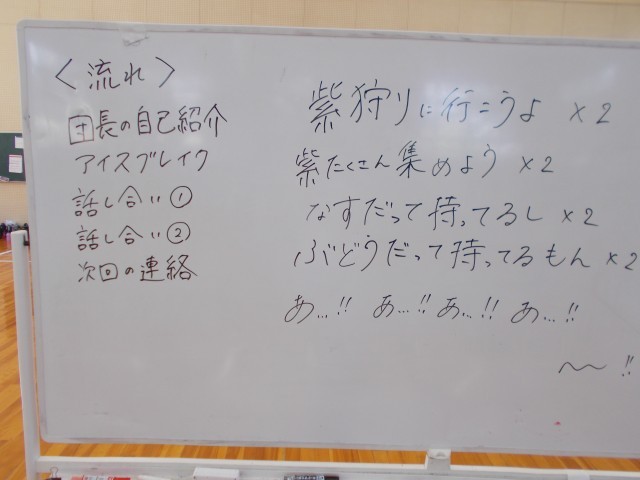 〈流れ〉
団長の自己紹介
アイスブレイク
話し合い①
話し合い②
次回の連絡
紫狩りに行こうよ ×2
紫たくさん集めよう ×2
なすだって持ってるし ×2
ぶどうだって持ってるもん ×2
あ…!! あ…!! あ…!! あ…!!
〜〜!!